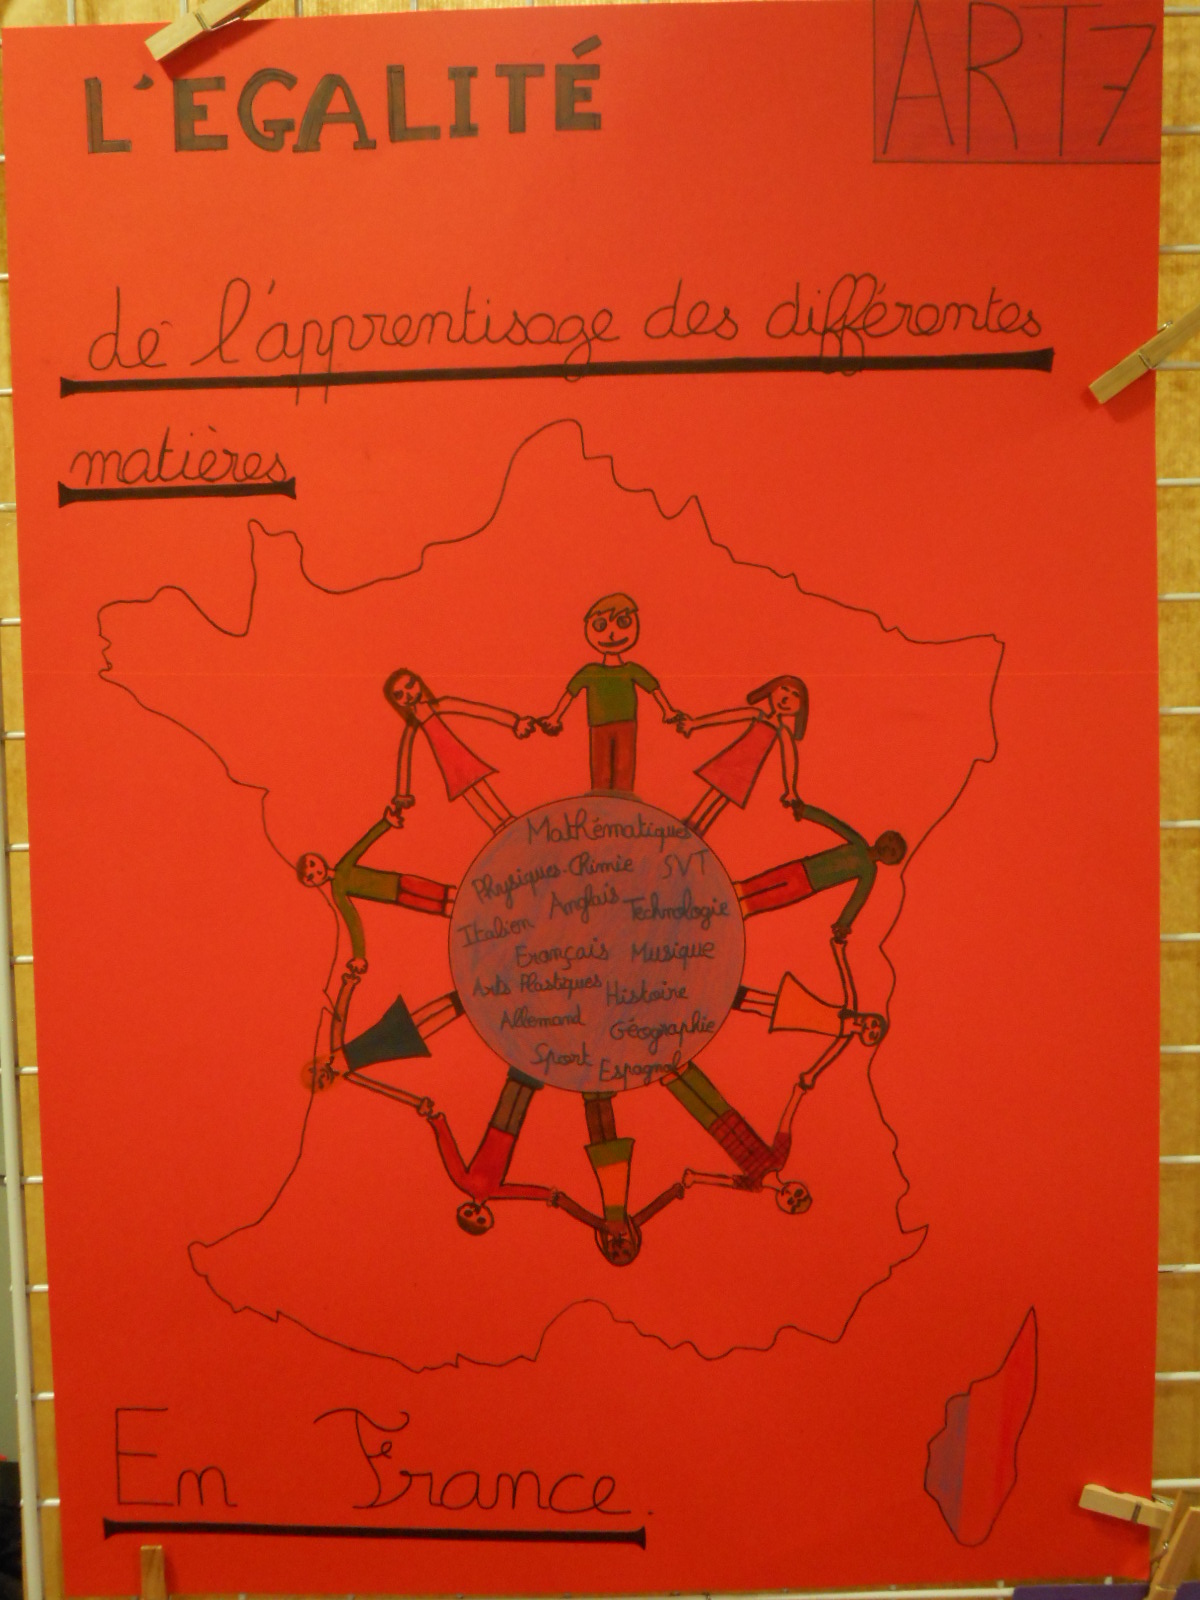 L'EGALITÉ
ART 7
de l'apprentisage des différentes
matières
Mathématiques
Physiques-Chimie SVT
Italien Anglais Technologie
Français Musique
Arts Plastiques Histoire
Allemand Géographie
Sport Espagnol
En France.